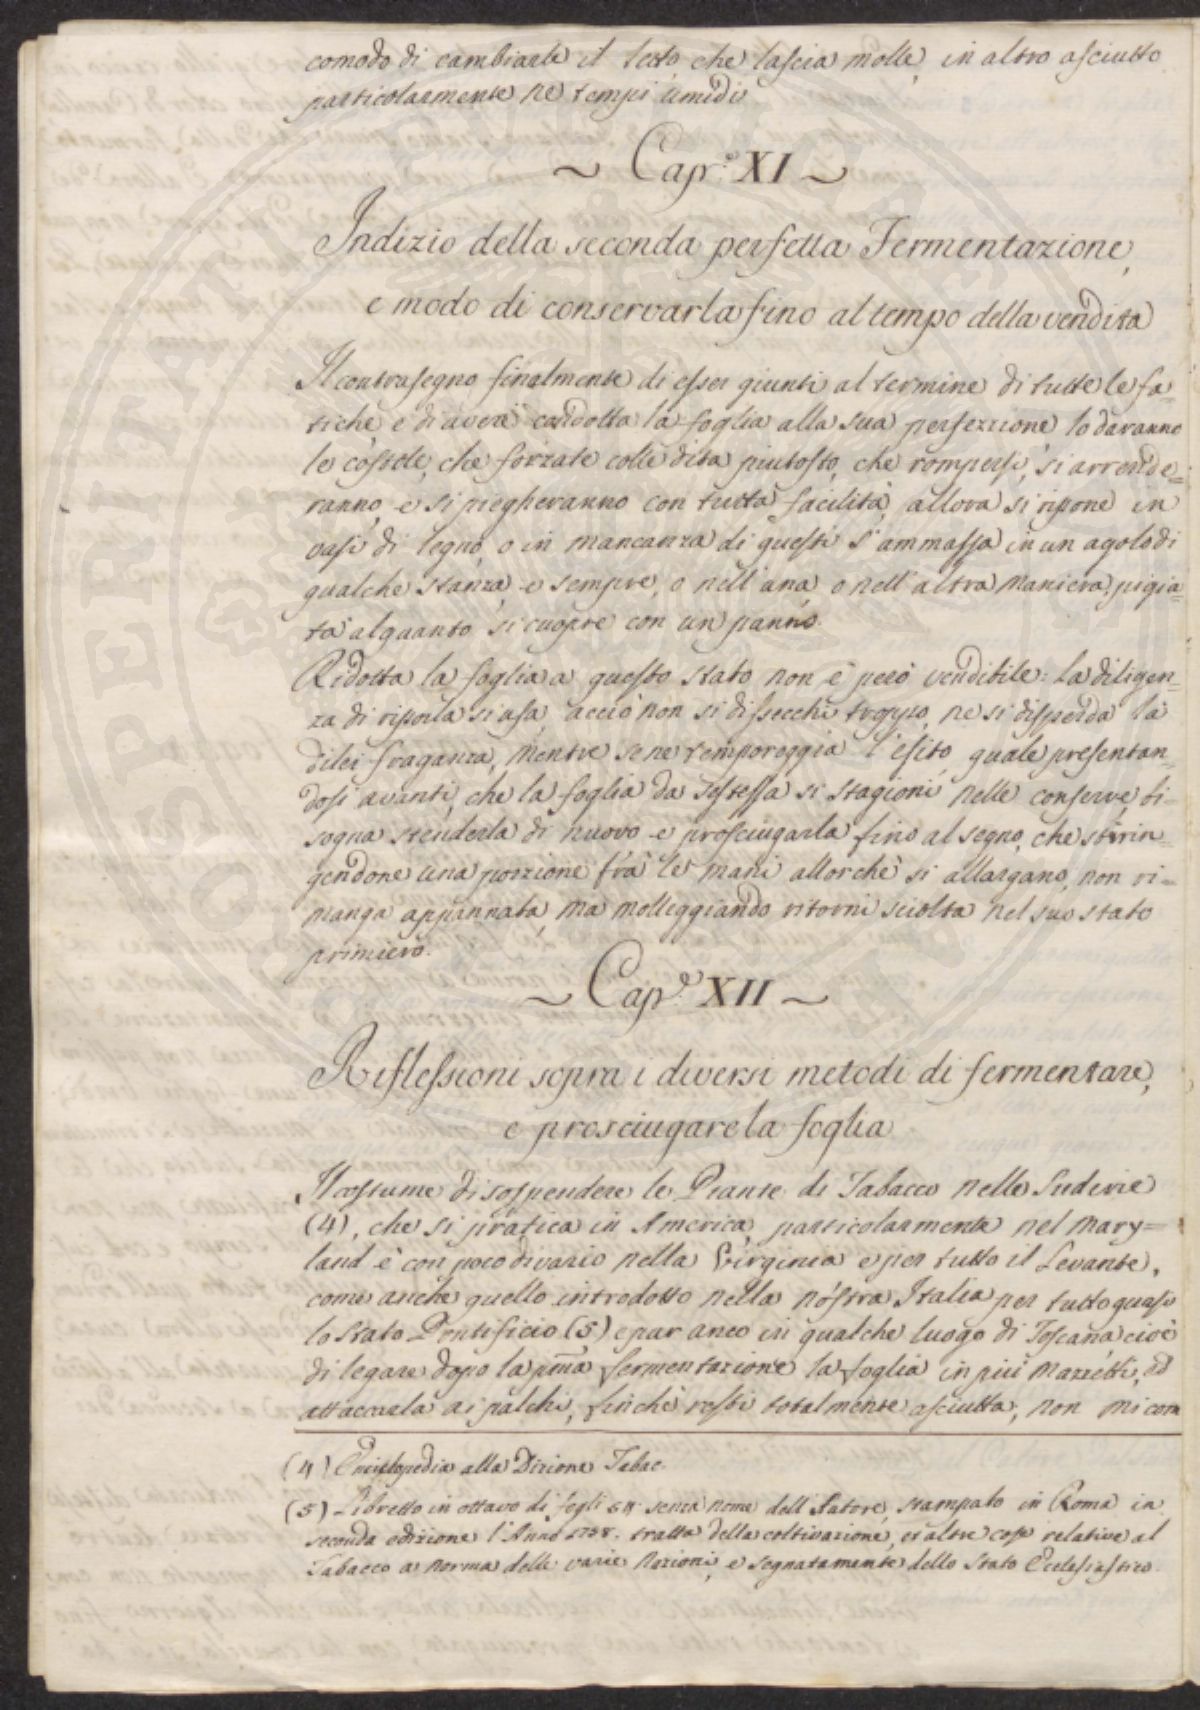 comodo di cambiarle il letto che lascia molle, in altro asciutto
particolarmente ne tempi umidi
~ Cap.o XI ~
Indizio della seconda perfetta Fermentazione,
e modo di conservarla fino al tempo della vendita
Il contrasegno finalmente di esser giunti al termine di tutte le fa=
tiche e di avere condotta la foglia alla sua perfezzione lo daranno
le costole, che forzate colle dita piutosto, che rompersi, si arrende=
ranno e si piegheranno con tutta facilità, allora si ripone in
vasi di legno, o in mancanza di questi s'ammassa in un agolo di
qualche stanza e sempre, o nell'una, o nell'altra maniera pigia=
ta alquanto si cuopre con un panno.
Ridotta la foglia a questo stato non è però vendibile: La diligen=
za di riporla si usa acciò non si dissecchi troppo, ne si disperda la
di lei fraganza, mentre se ne temporeggia l'esito, quale presentan=
dosi avanti, che la foglia da sestessa si stagioni nelle conserve, bi=
sogna stenderla di nuovo e prosciugarla fino al segno, che strin=
gendone una porzione fra le mani allorchè si allargano, non ri=
manga appannata, ma molleggiando ritorni sciolta nel suo stato
primiero.
~ Cap.o XII ~
Riflessioni sopra i diversi metodi di fermentare,
e prosciugare la foglia
Il costume di sospendere le Piante di Tabacco nelle Suderie
(4), che si pratica in America, particolarmente nel Mary=
land è con poco divario nella Virginia e per tutto il Levante,
come anche quello introdotto nella nostra Italia per tutto quasi
lo Stato Pontificio (5) e pur anco in qualche luogo di Toscana cioè
di legare dopo la pma fermentazione la foglia in più Mazzetti, ed
attaccarla ai palchi, finchè resti totalmente asciutta, non mi com
(4) Enciclopedia alla Dizione Tabac.
(5) Libretto in ottavo di fogli senza nome dell'Autore, stampato in Roma in
seconda edizione l'Anno 1758. tratta della coltivazione, et altre cose relative al
Tabacco a norma delle varie Nazioni, e segnatamente dello Stato Ecclesiastico.